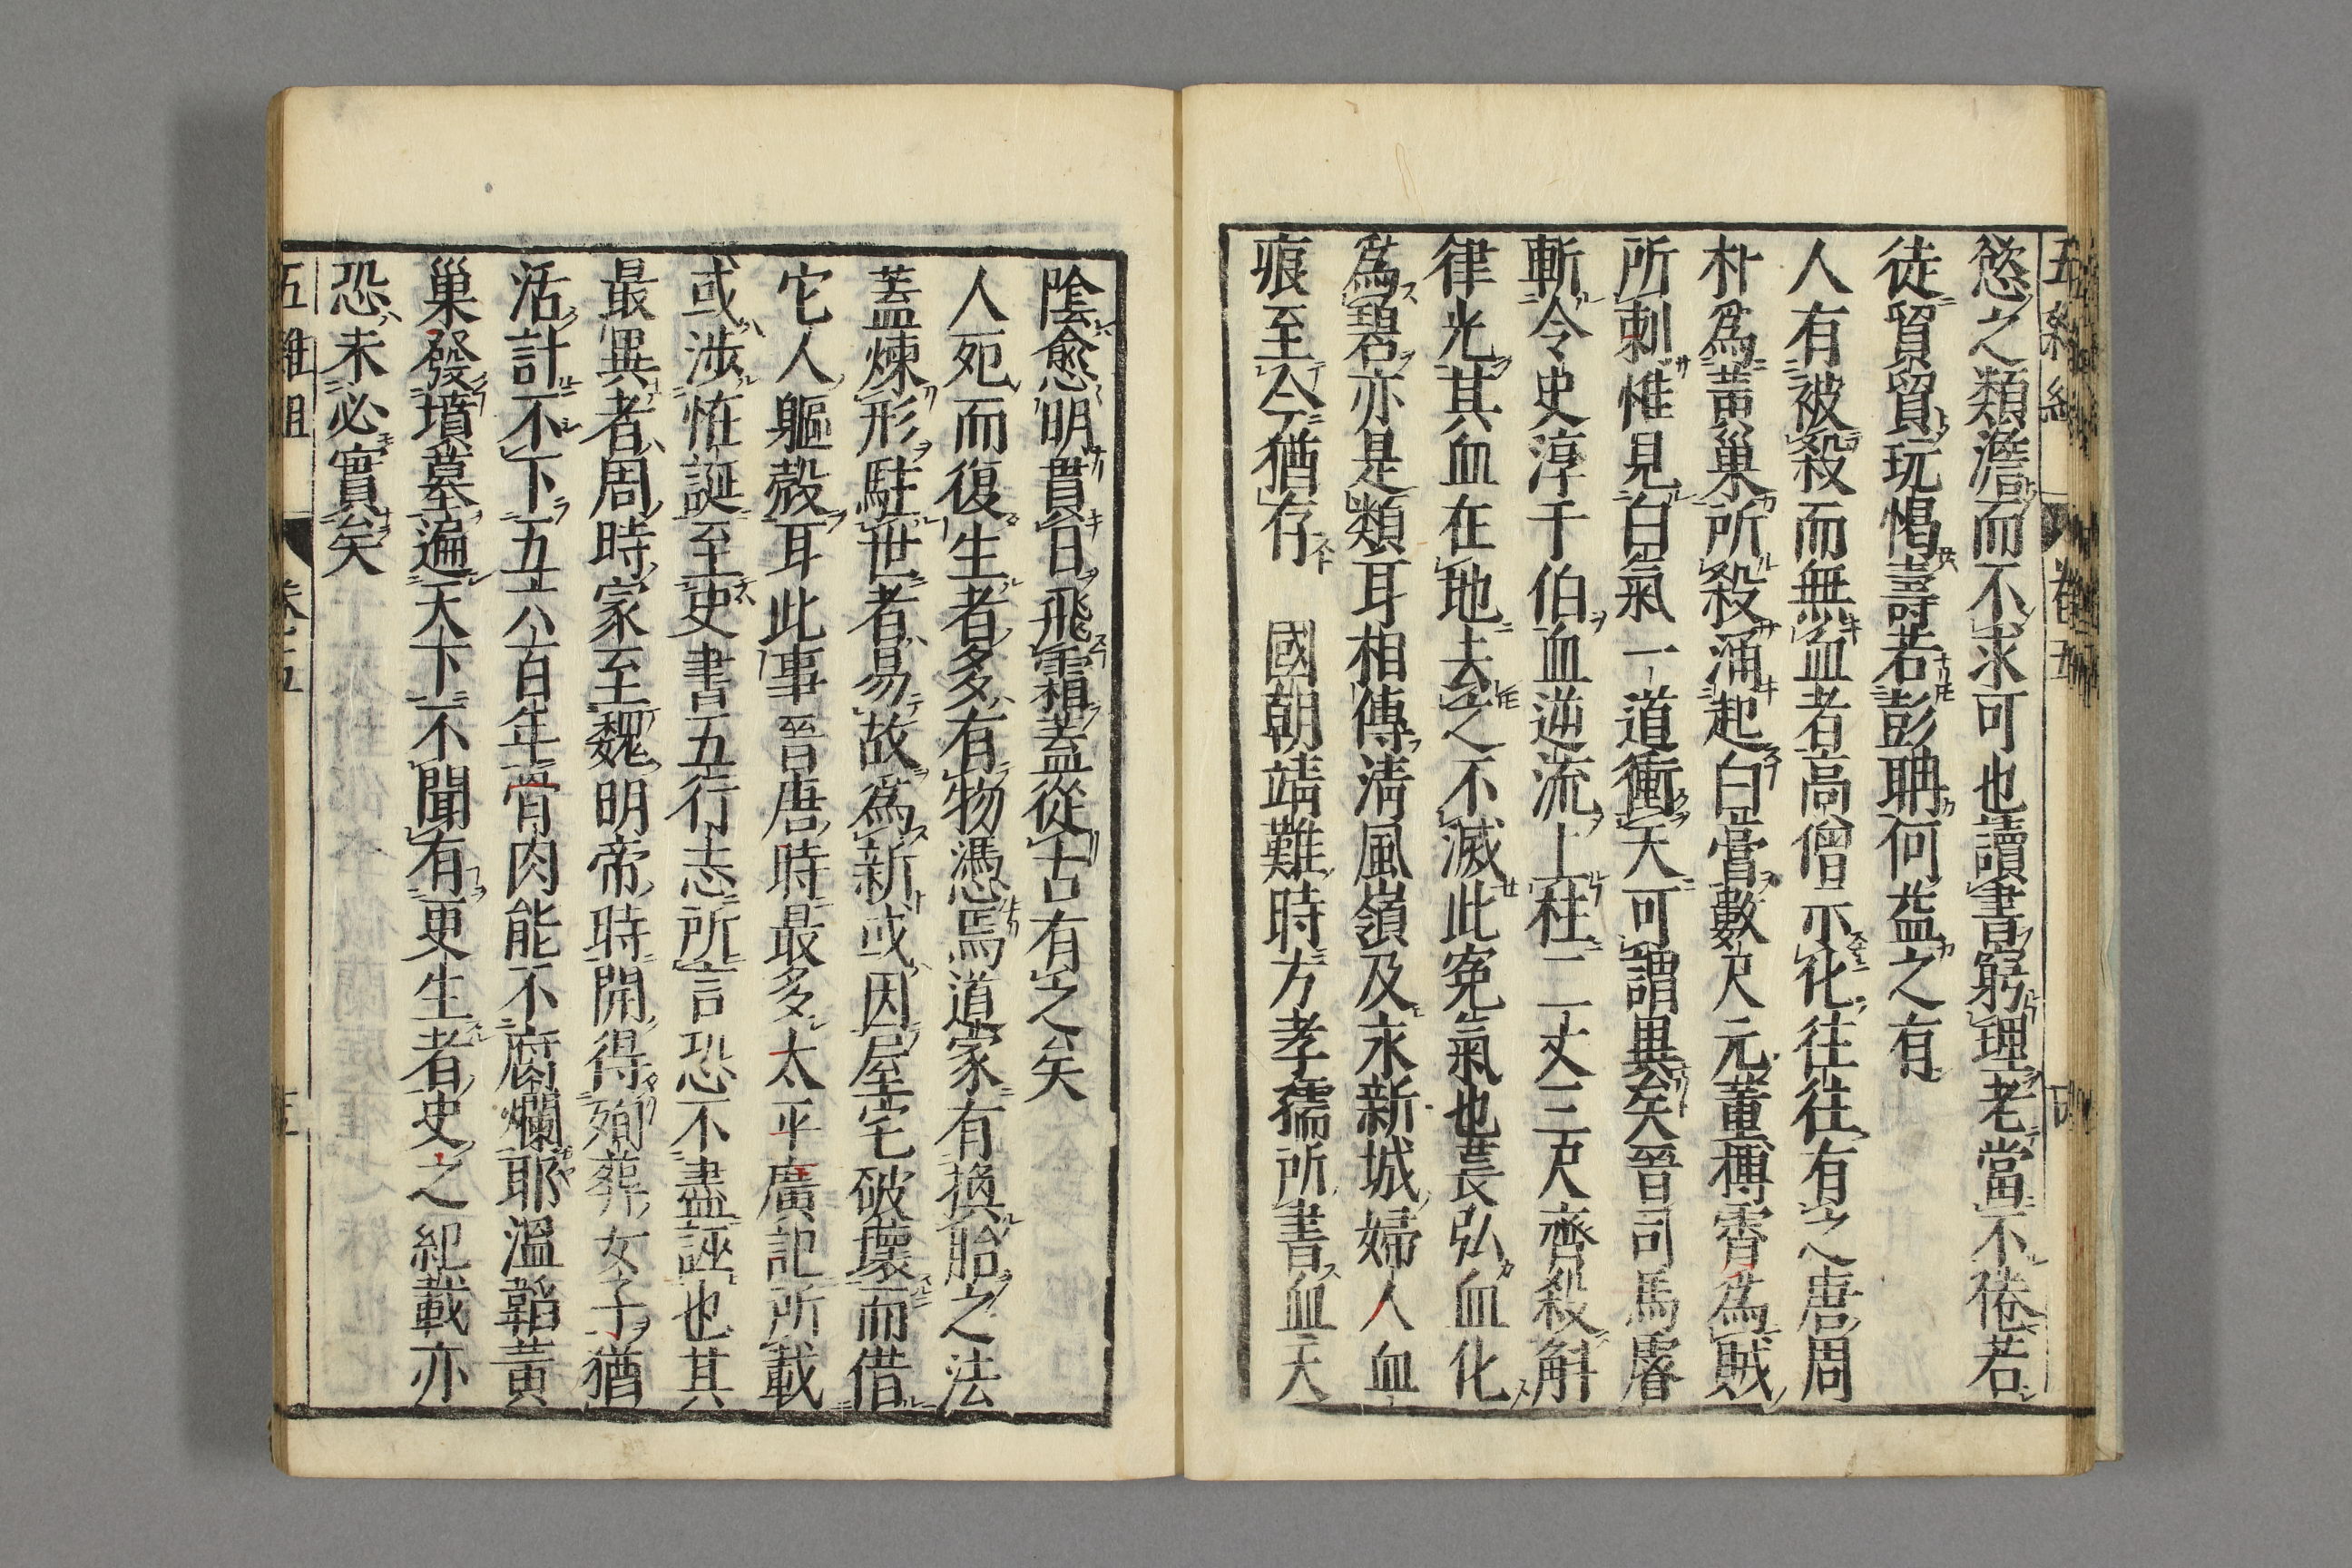 慾之類澹而不求可也讀書窮理老當不倦若
徒貿貿玩愒壽若彭聃何益之有
人有被殺而無血者高僧示化往往有之唐周
朴爲黃巢所殺涌起白膏數尺元董摶霄爲賊
所刺惟見白氣一道衝天可謂異矣晉司馬睿
斬令史淳于伯血逆流上柱二丈三尺齊殺斛
律光其血在地去之不滅此冤氣也萇弘血化
爲碧亦是類耳相傳淸風嶺及永新城婦人血
痕至今猶存　國朝靖難時方孝孺所書血天
陰愈明貫日飛霜蓋從古有之矣
人死而復生者多有物憑焉道家有換胎之法
蓋煉形駐世者易故爲新或因屋宅破壞而借
它人軀殼耳此事晉唐時最多太平廣記所載
或涉怪誕至史書五行志所言恐不盡誣也其
最異者周時冢至魏明帝時開得殉葬女子猶
活計不下五六百年骨肉能不腐爛耶溫韜黃
巢發墳墓遍天下不聞有更生者史之紀載亦
恐未必實矣
五雜組　卷之五　五